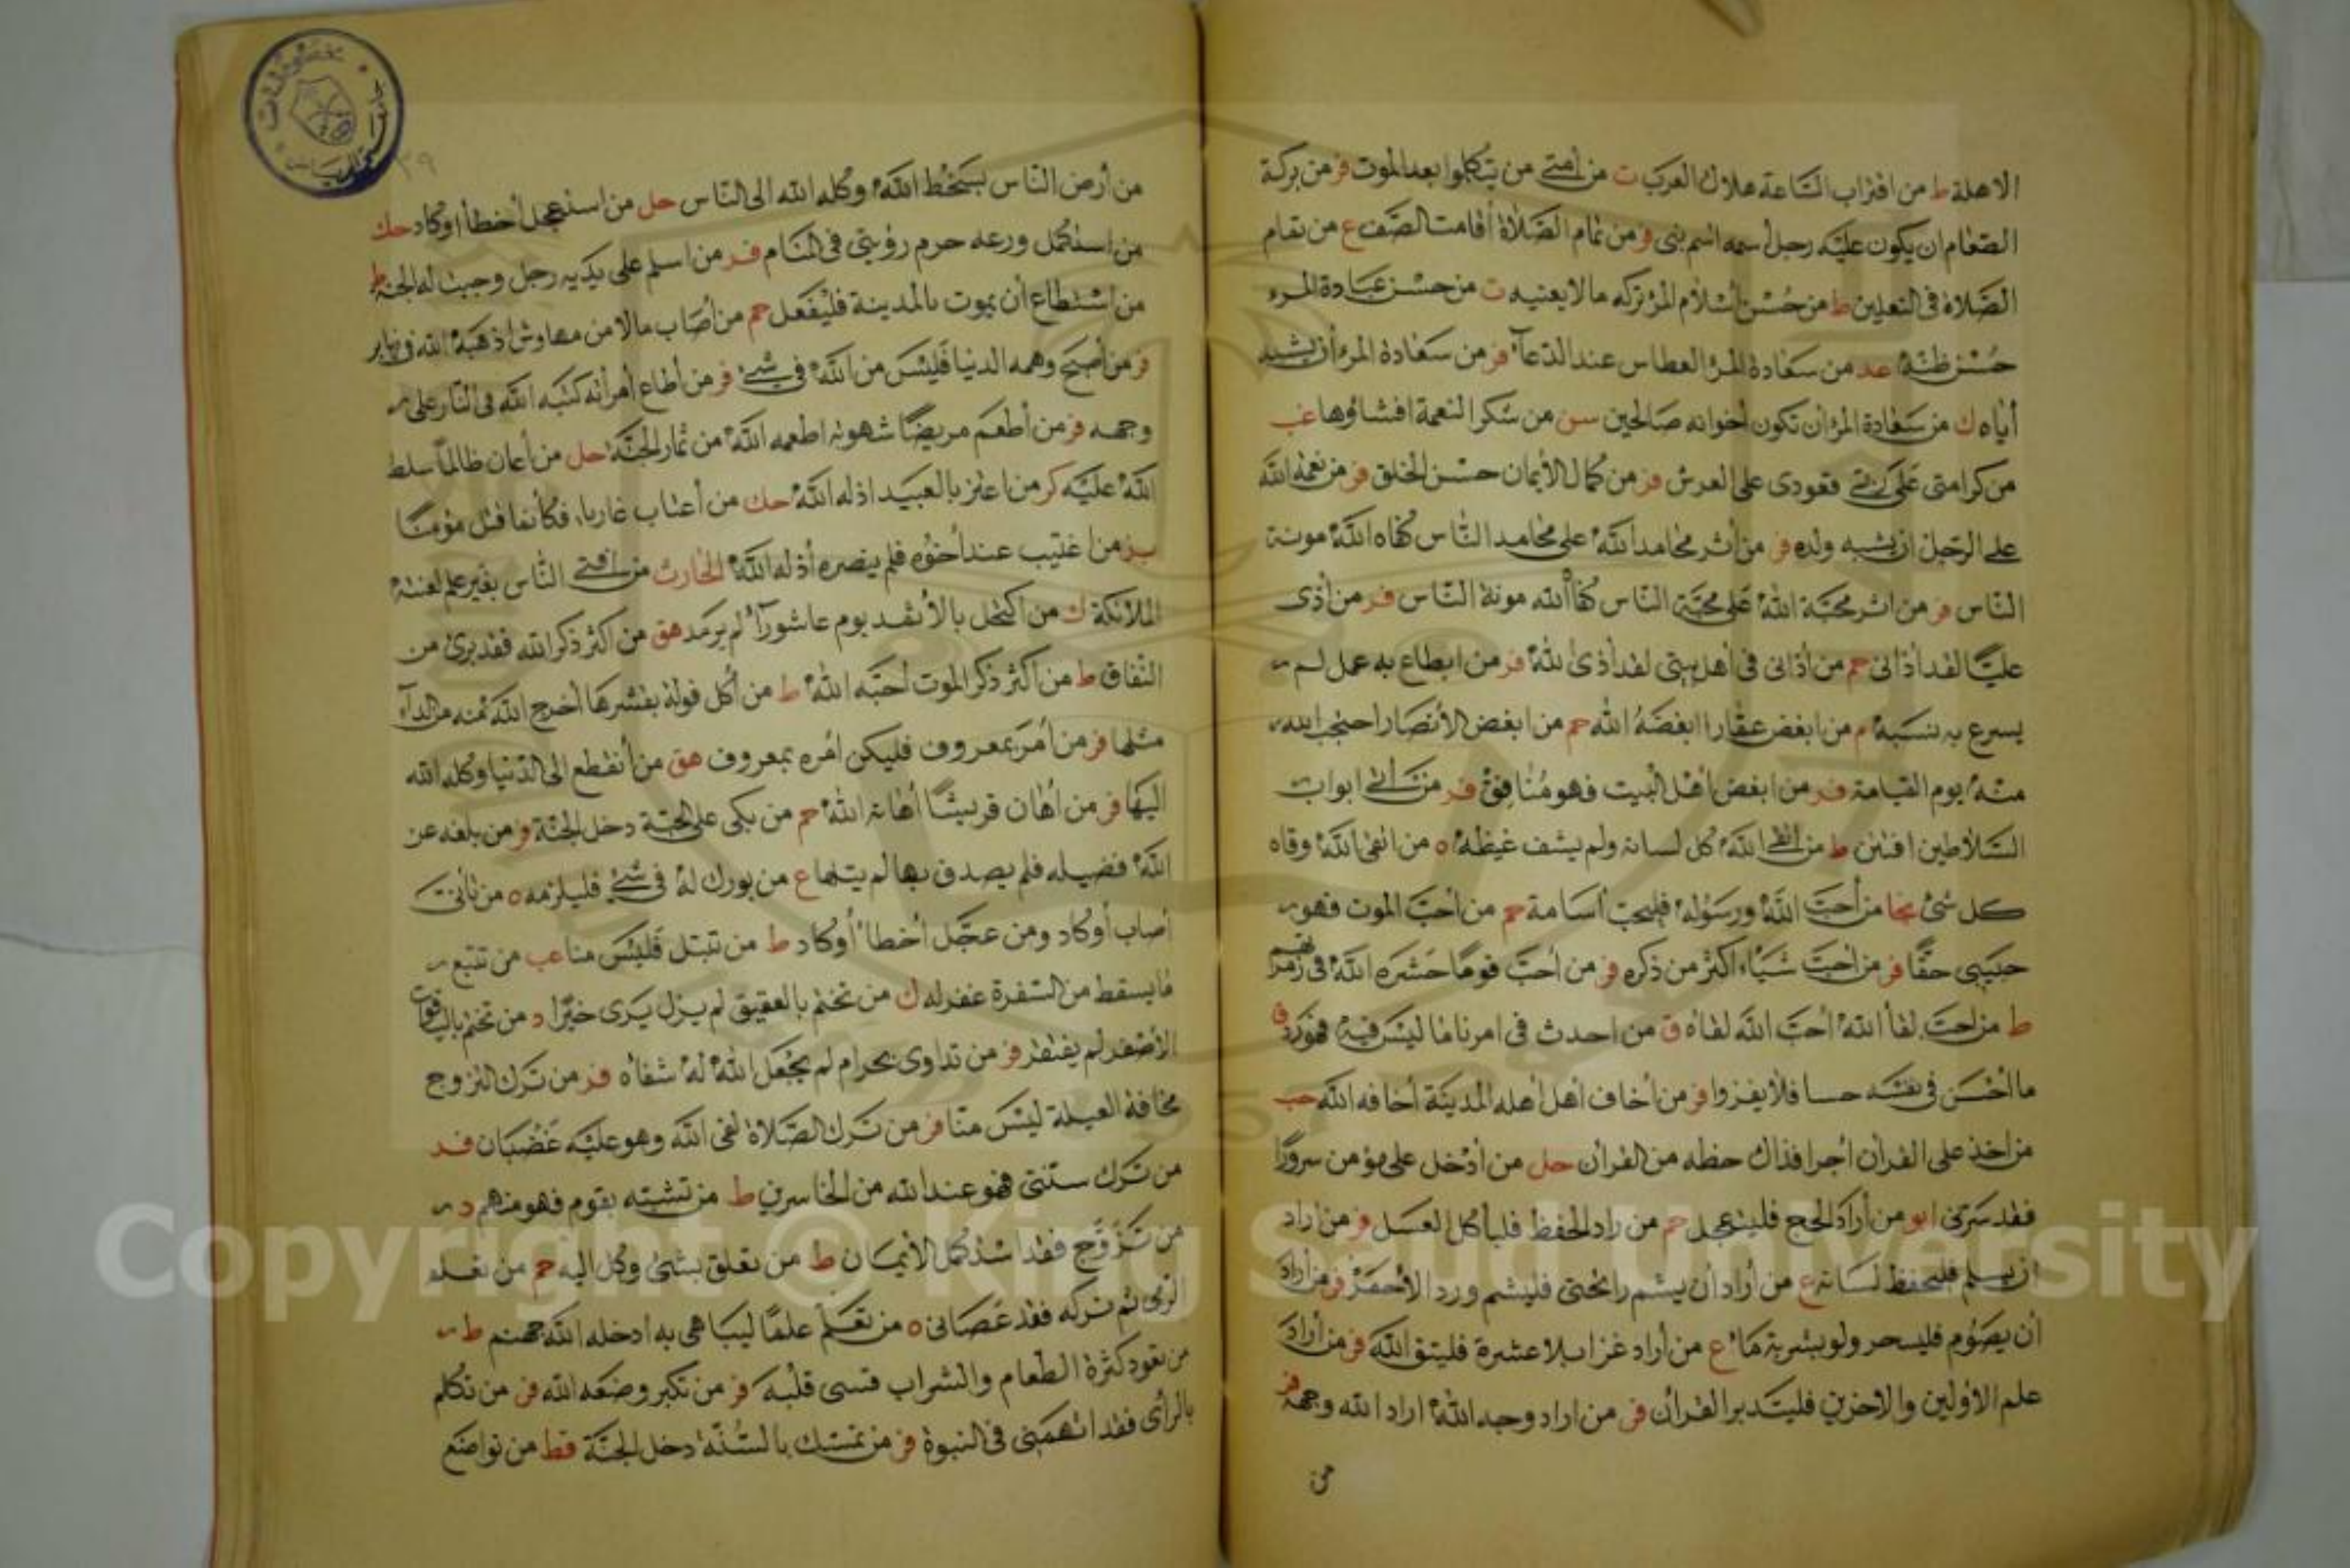 الاهلة ط من اقتراب الساعة هلاك العرب ت من أمتى من يتكلموا بعد الموت فر من بركة
الطعام ان يكون عليه رجل أسمه اسم نبى فر من تمام الصلاة أقامت الصف ع من تمام
الصلاة فى النعلين ط من حسن اسلام المرء تركه مالا يعنيه ت من حسن عبادة المرء
حسن ظنه عد من سعادة المرء العطاس عند الدعآء فر من سعادة المرء أن يشبه
أباه ك من سعادة المرء ان تكون أخوانه صالحين سن من شكر النعمة افشاؤها عب
من كرامتى على ربى قعودى على العرش فر من كمال الأيمان حسن الخلق فر من نعمة الله
على الرجل ان يشبه ولده فر من أثر محامد الله على محامد الناس كفاه الله مونة
الناس فر من اثر محبة الله على محبة الناس كفأ الله مونة الناس فر من أذى
عليًا لقد أذانى حم من أذانى فى أهل بيتى لقد أذى الله فر من ابطاع به عمل لم
يسرع به نسبه م من ابغض عقارا ابغضه الله حم من ابغض الأنصار احتجب الله
منه يوم القيامة فر من ابغض أهل البيت فهو منافق فر من أتى ابواب
السلاطين افتتن ط من اتقى الله كل لسانه ولم يشف غيظه ه من اتقى الله وقاه
كل شئ نجا من أحب الله ورسوله فليحب أسامة حم من أحب الموت فهو
حبيبى حقًا فر من أحب شيأ اكثر من ذكره فر من أحب قومًا حشره الله فى زمرتهم
ط من احب لقأ الله أحب الله لقاه ق من احدث فى امرنا ما ليس فيه فهو رد ق
ما أحسن فى نفسه حسا فلا يغزوا فر من أخاف أهل أهله المدينة أخافه الله حب
من اخذ على القرأن أجرا فذاك حظه من القرأن حل من أدخل على مؤمن سرورًا
فقد سرنى ابو من أراد الحج فليتعجل حم من راد الحفظ فليأكل العسل فر من أراد
ان يسلم فليحفظ لسانه ع من أراد أن يشم رائحتى فليشم ورد الأحمر فر من أراد
أن يصوم فليسحر ولو بشربة مآء ع من أراد غزا بلا عشرة فليتق الله فر من أراد
علم الاولين والاخرين فليتدبر القرأن فر من اراد وجه الله اراد الله وجهه فر
من
من أرض الناس بسخط الله وكله الله الى الناس حل من استعجل أخطأ اوكاد حك
من اسفاكل ورعه حرم رؤيتى فى المنام فر من اسلم على يديه رجل وجبت له الجنة ط
من استطاع أن يموت بالمدينة فليفعل حم من أصاب مالا من مهاوش اذهبه الله فى نهابر
فر من أصبح وهمه الدنيا فليس من الله فى شئ فر من أطاع أمرأته كبه الله فى النار على
وجهه فر من أطعم مريضًا شهوته اطعمه الله من ثمار الجنة حل من أعان ظالمًا سلط
الله عليه كر من اعتز بالعبيد اذله الله حك من أعتاب غازيا، فكأنما قتل مؤمنًا
بز من اغتيب عند أخوه فلم ينصره أذله الله الحارث من افتى الناس بغير علم لعنته
الملائكة ك من اكتحل بالأثمد يوم عاشورآء لم يرمد هق من اكثر ذكر الله فقد برئ من
النفاق ط من اكثر ذكر الموت أحبه الله ط من أكل فولة بقشرها أخرج الله منه من الدآء
مثلها فر من أمر بمعروف فليكن أمره بمعروف هق من أنقطع الى الدنيا وكله الله
اليها فر من أهان قريشًا أهانه الله حم من بكى على الجنة دخل الجنة فر من بلغه عن
الله فضيله فلم يصدق بها لم يتلها ع من بورك له فى شئ فليلزمه ه من تأنت
أصاب أوكاد ومن عجل أخطأ أوكاد ط من تبتل فليس منا عب من تتبع
ما يسقط من السفرة غفر له ك من تختم بالعقيق لم يزل يرى خيرًا د من تختم بالياقوت
الأصفر لم يفتقر فر من تداوى بحرام لم يجعل الله له شفاه فر من ترك التزوج
مخافة العيلة ليس منا فر من ترك الصلاة لقى الله وهو عليه غضبان فد
من ترك سنتى فهو عند الله من الخاسرين ط من تشبه بقوم فهو منهم د
من تزوج فقد استكمل الأيمان ط من تعلق بشئ وكل اليه حم من تعلم
الرمى ثم تركه فقد عصانى ه من تعلم علمًا ليباهى به ادخله الله جهنم ط
من تعود كثرة الطعام والشراب قسى قلبه فر من تكبر وضعه الله فر من تكلم
بالرأى فقد اتهمنى فى النبوة فر من تمسك بالسنة دخل الجنة قط من تواضع
Copyright © King Saud University